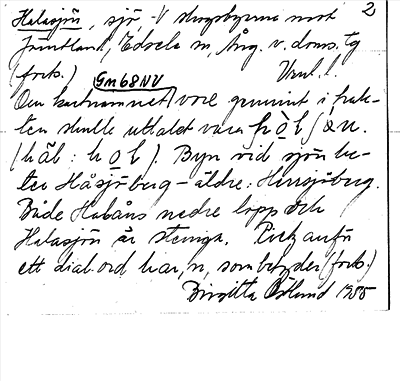 Halasjön, sjö, -V skogsbyarna mot 2
Jämtland, Edsele sn, Ång. v. doms. tg
(forts.) Gm68NV
Om kartnamnet vore genuint i trak-
ten skulle uttalet vara
(hål: ). Byn vid sjön he-
ter Håsjöberg - äldre: Hersjöberg.
Både Halåns nedre lopp och
Halasjön är steniga. Rietz anför
ett dial.ord har, n, som betyder (forts.)
Birgitta Östlund 1955